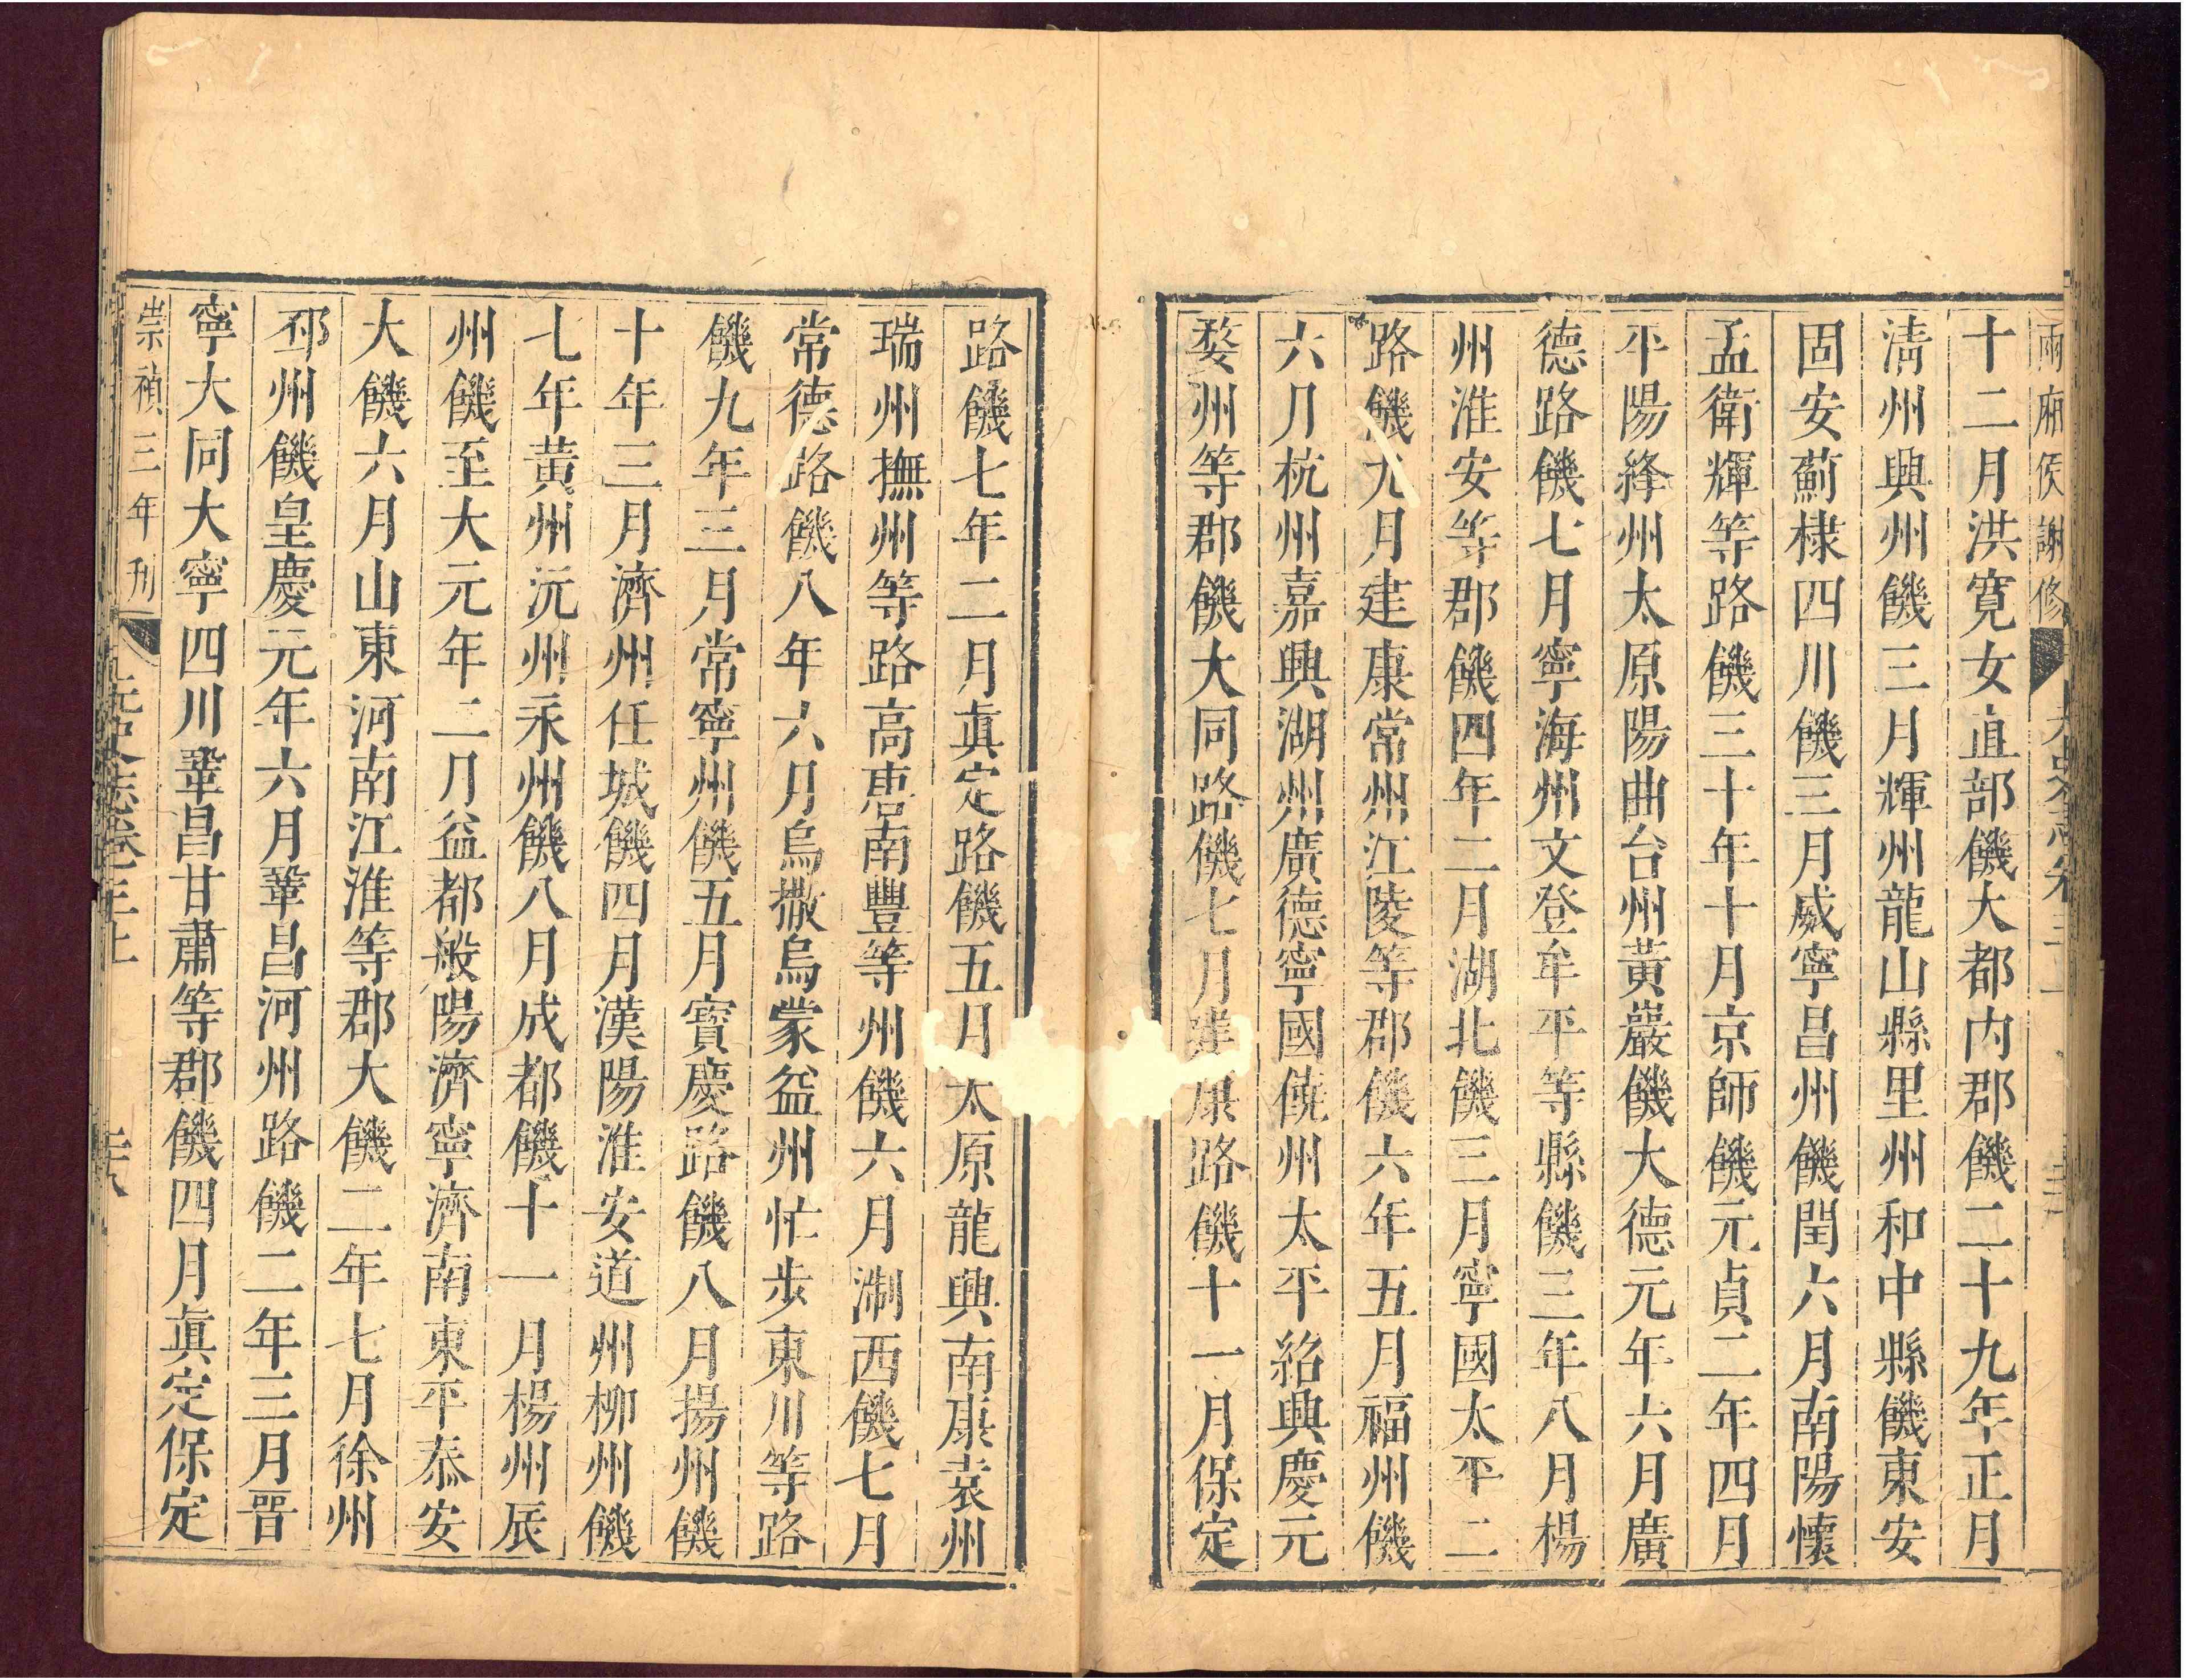 兩廂侯謝修
十二月洪寬女直部饑大都内郡饑二十九年正月
清州興州饑三月輝州龍山縣里州和中縣饑東安
固安薊棣四川饑三月威寧昌州饑閏六月南陽懷
孟衛輝等路饑三十年十月京師饑元貞二年四月
平陽絳州太原陽曲台州黃巖饑大德元年六月廣
德路饑七月寧海州文登牟平等縣饑三年八月楊
州淮安等郡饑四年二月湖北饑三月寧國太平二
路饑九月建康常州江陵等郡饑六年五月福州饑
六月杭州嘉興湖州廣德寧國饒州太平紹興慶元
婺州等郡饑大同路饑七月建康路饑十一月保定
路饑七年二月眞定路饑五月太原龍興南康袁州
瑞州撫州等路高唐南豐等州饑六月浙西饑七月
常德路饑八年六月烏撒烏蒙益州忙步東川等路
饑九年三月常寧州饑五月寶慶路饑八月揚州饑
十年三月濟州任城饑四月漢陽淮安道州柳州饑
七年黃州沅州永州饑八月成都饑十一月楊州辰
州饑至大元年二月益都般陽濟寧濟南東平泰安
大饑六月山東河南江淮等郡大饑二年七月徐州
邳州饑皇慶元年六月鞏昌河州路饑二年三月晋
寧大同大寧四川鞏昌甘肅等郡饑四月眞定保定
崇禎三年刋
元史志卷三上